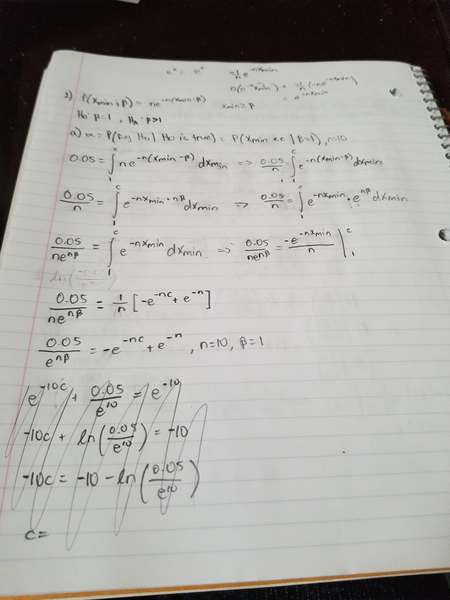 eˣ = eˣ -1/n e^(-nxmin)
= e^(-nxmin)
P(xmin; β) = ne^(-n(xmin-β)) xmin ≥ β
H₀ β=1, Hₐ β>1
a) α = P(Rej H₀ | H₀ is true) = P(xmin ≤ c | β=1), n=10
0.05 = ∫₁ᶜ ne^(-n(xmin-β)) dxmin => 0.05/n = ∫₁ᶜ e^(-n(xmin-β)) dxmin
0.05/n = ∫₁ᶜ e^(-nxmin+nβ) dxmin => 0.05/n = ∫₁ᶜ e^(-nxmin) • e^(nβ) dxmin
0.05/(ne^(nβ)) = ∫₁ᶜ e^(-nxmin) dxmin => 0.05/(ne^(nβ)) = -e^(-nxmin)/n |₁ᶜ
0.05/(ne^(nβ)) = 1/n [-e^(-nc) + e^(-n)]
0.05/e^(nβ) = -e^(-nc) + e^(-n), n=10, β=1
e^(-10c) + 0.05/e^(10) = e^(-10)
-10c + ln(0.05/e^(10)) = -10
-10c = -10 - ln(0.05/e^(10))
c=